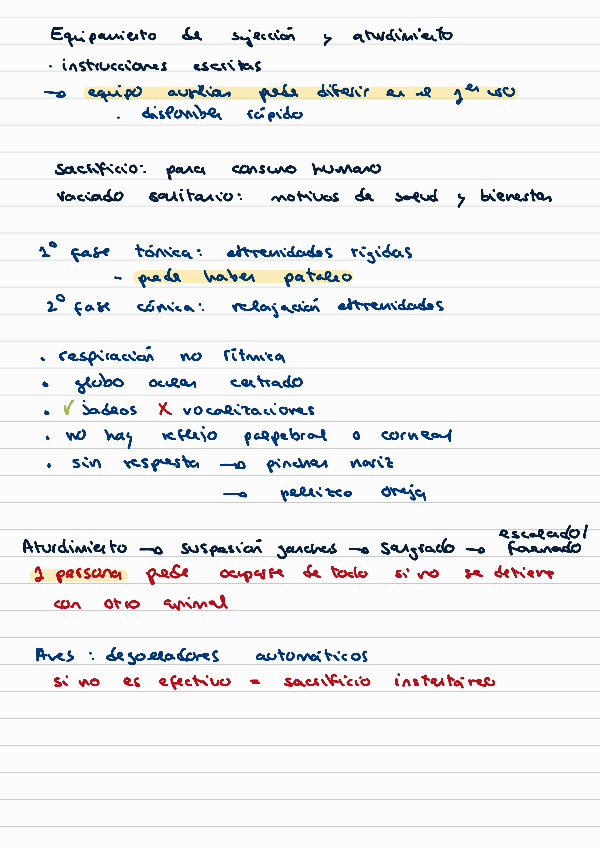 Equipamiento de sujección y aturdimiento
· instrucciones escritas
→ equipo auxiliar puede diferir en el 1er uso
· disponible rápido
sacrificio: para consumo humano
vaciado sanitario: motivos de salud y bienestar
1º fase tónica: extremidades rígidas
- puede haber pataleo
2º fase cónica: relajación extremidades
• respiración no rítmica
• globo ocular centrado
• ✓ jadeos X vocalizaciones
• no hay reflejo palpebral o corneal
• sin respuesta → pinchar nariz
→ pellizco oreja
Aturdimiento → suspesión ganchos → sangrado → escaldado/faenado
1 persona puede ocuparse de todo si no se detiene
con otro animal
Aves: degolladores automáticos
si no es efectivo = sacrificio instantáneo